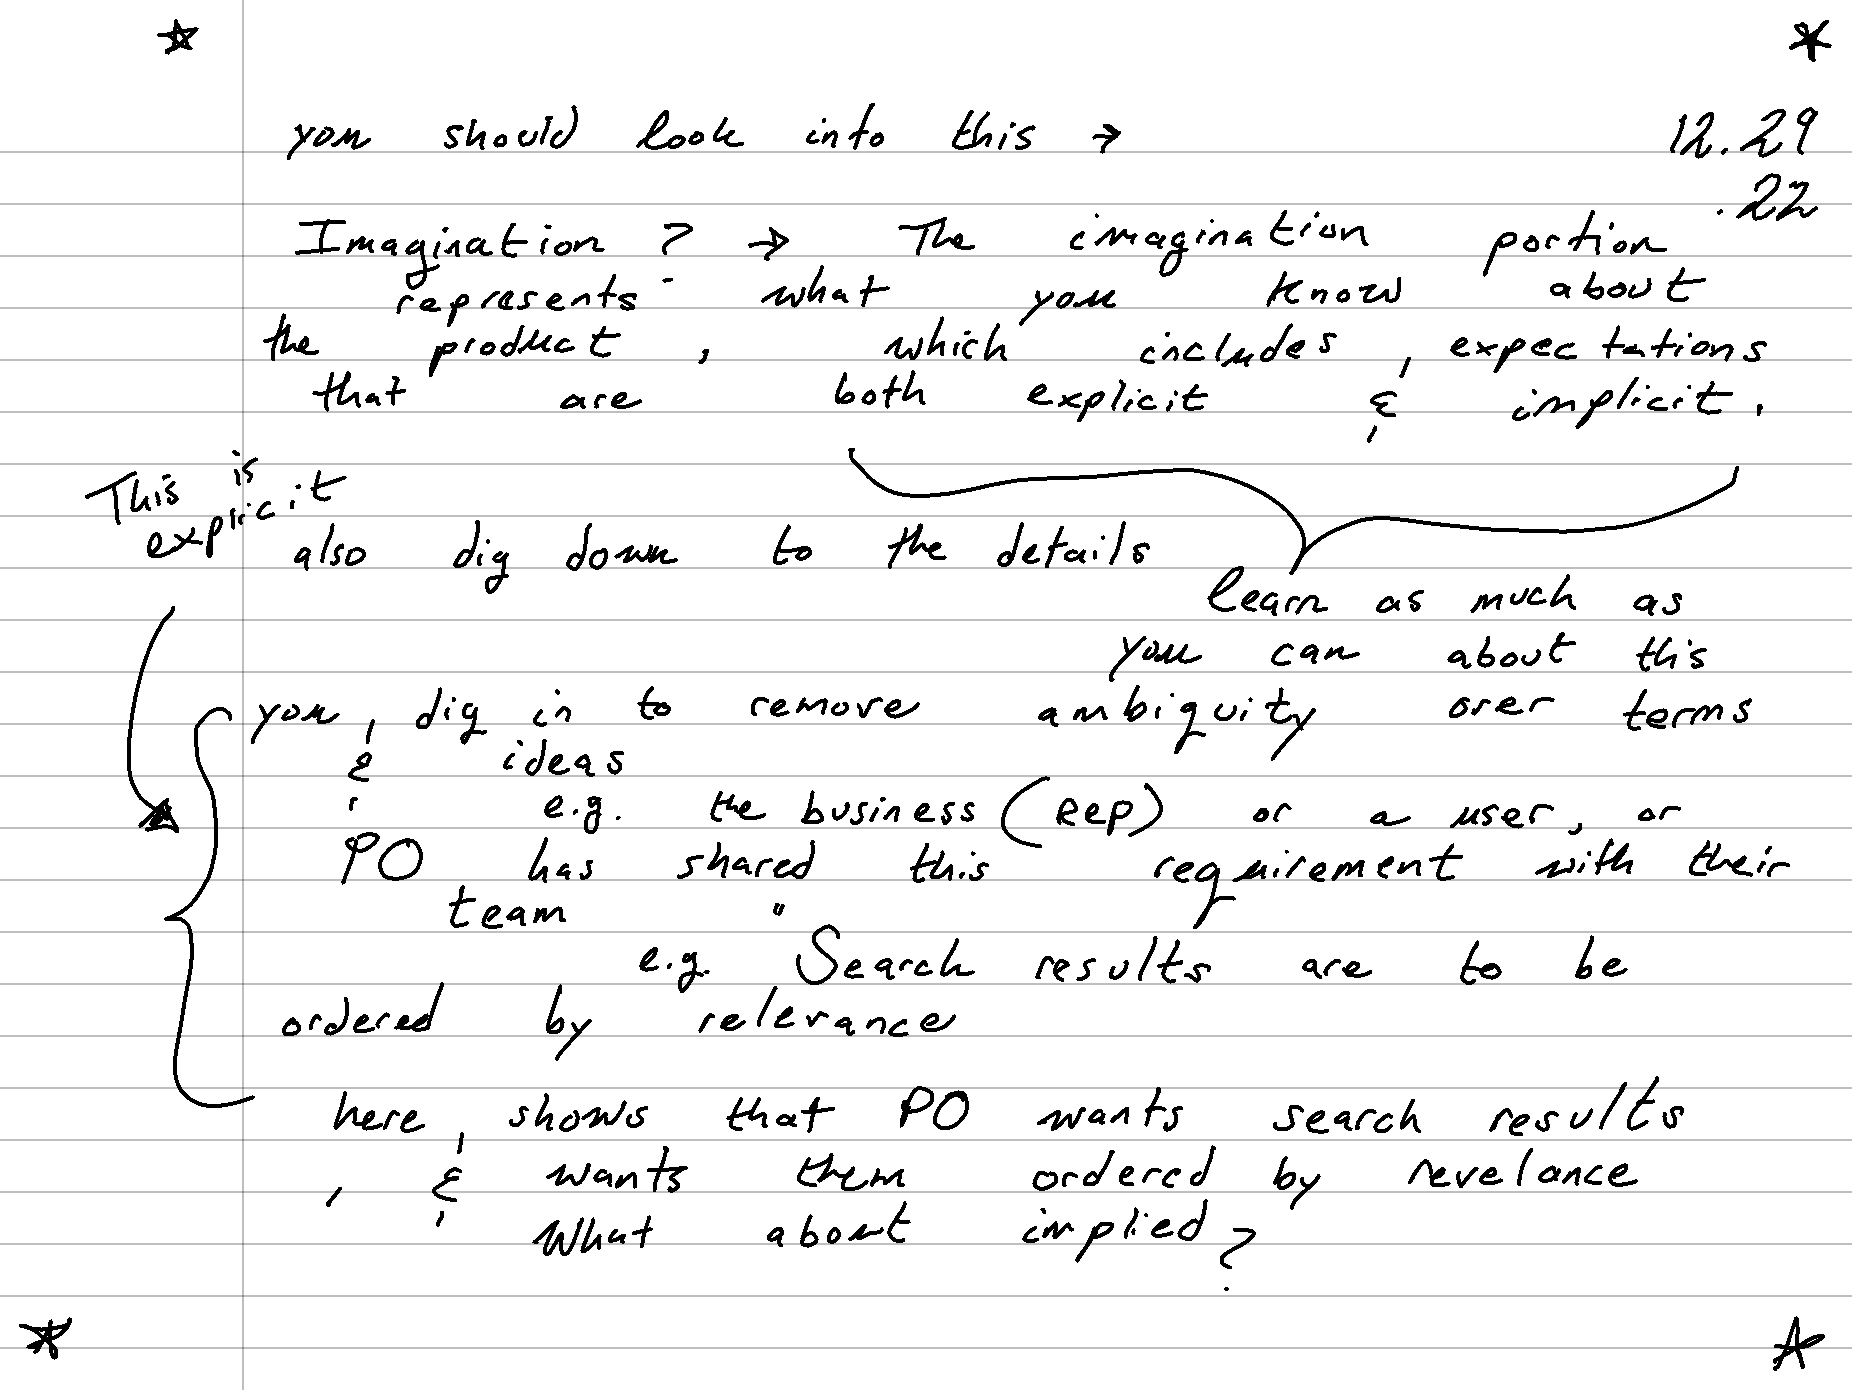 you should look into this →
12.29
.22
Imagination ? → The imagination portion
represents what you know about
the product , which includes , expectations
that are both explicit & implicit .
This is
explicit
also dig down to the details
learn as much as
you can about this
you , dig in to remove ambiquity over terms
& ideas
e.g. the business (REP) or a user, or
PO has shared this requirement with their
team
e.g. "Search results are to be
ordered by relevance
here , shows that PO wants search results
, & wants them ordered by revelance
What about implied ?